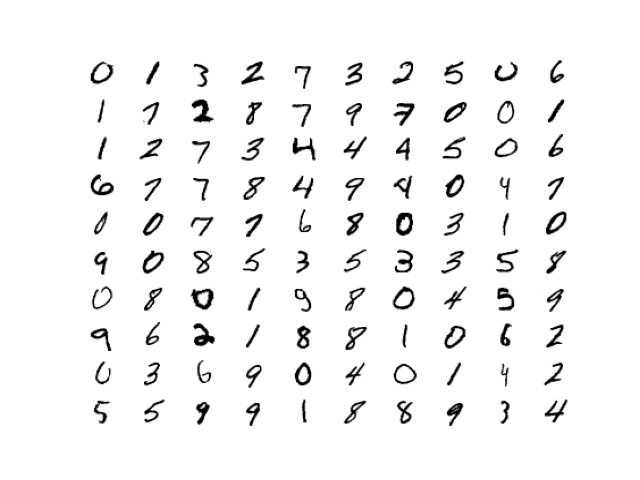 0 1 3 2 7 3 2 5 0 6
1 7 2 8 7 9 7 0 0 1
1 2 7 3 4 4 4 5 0 6
6 7 7 8 4 9 4 0 4 7
0 0 7 7 6 8 0 3 1 0
9 0 8 5 3 5 3 3 5 8
0 8 0 1 9 8 0 4 5 9
9 6 2 1 8 8 1 0 6 2
0 3 6 9 0 4 0 1 4 2
5 5 9 9 1 8 8 9 3 4